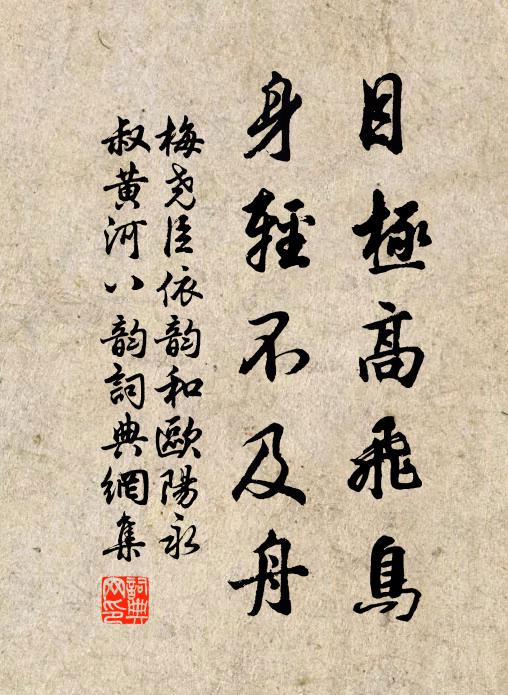 目極高飛鳥
身輕不及舟
梅堯臣依韵和歐陽永
叔黃河八韵詞典網集
詞典
网印